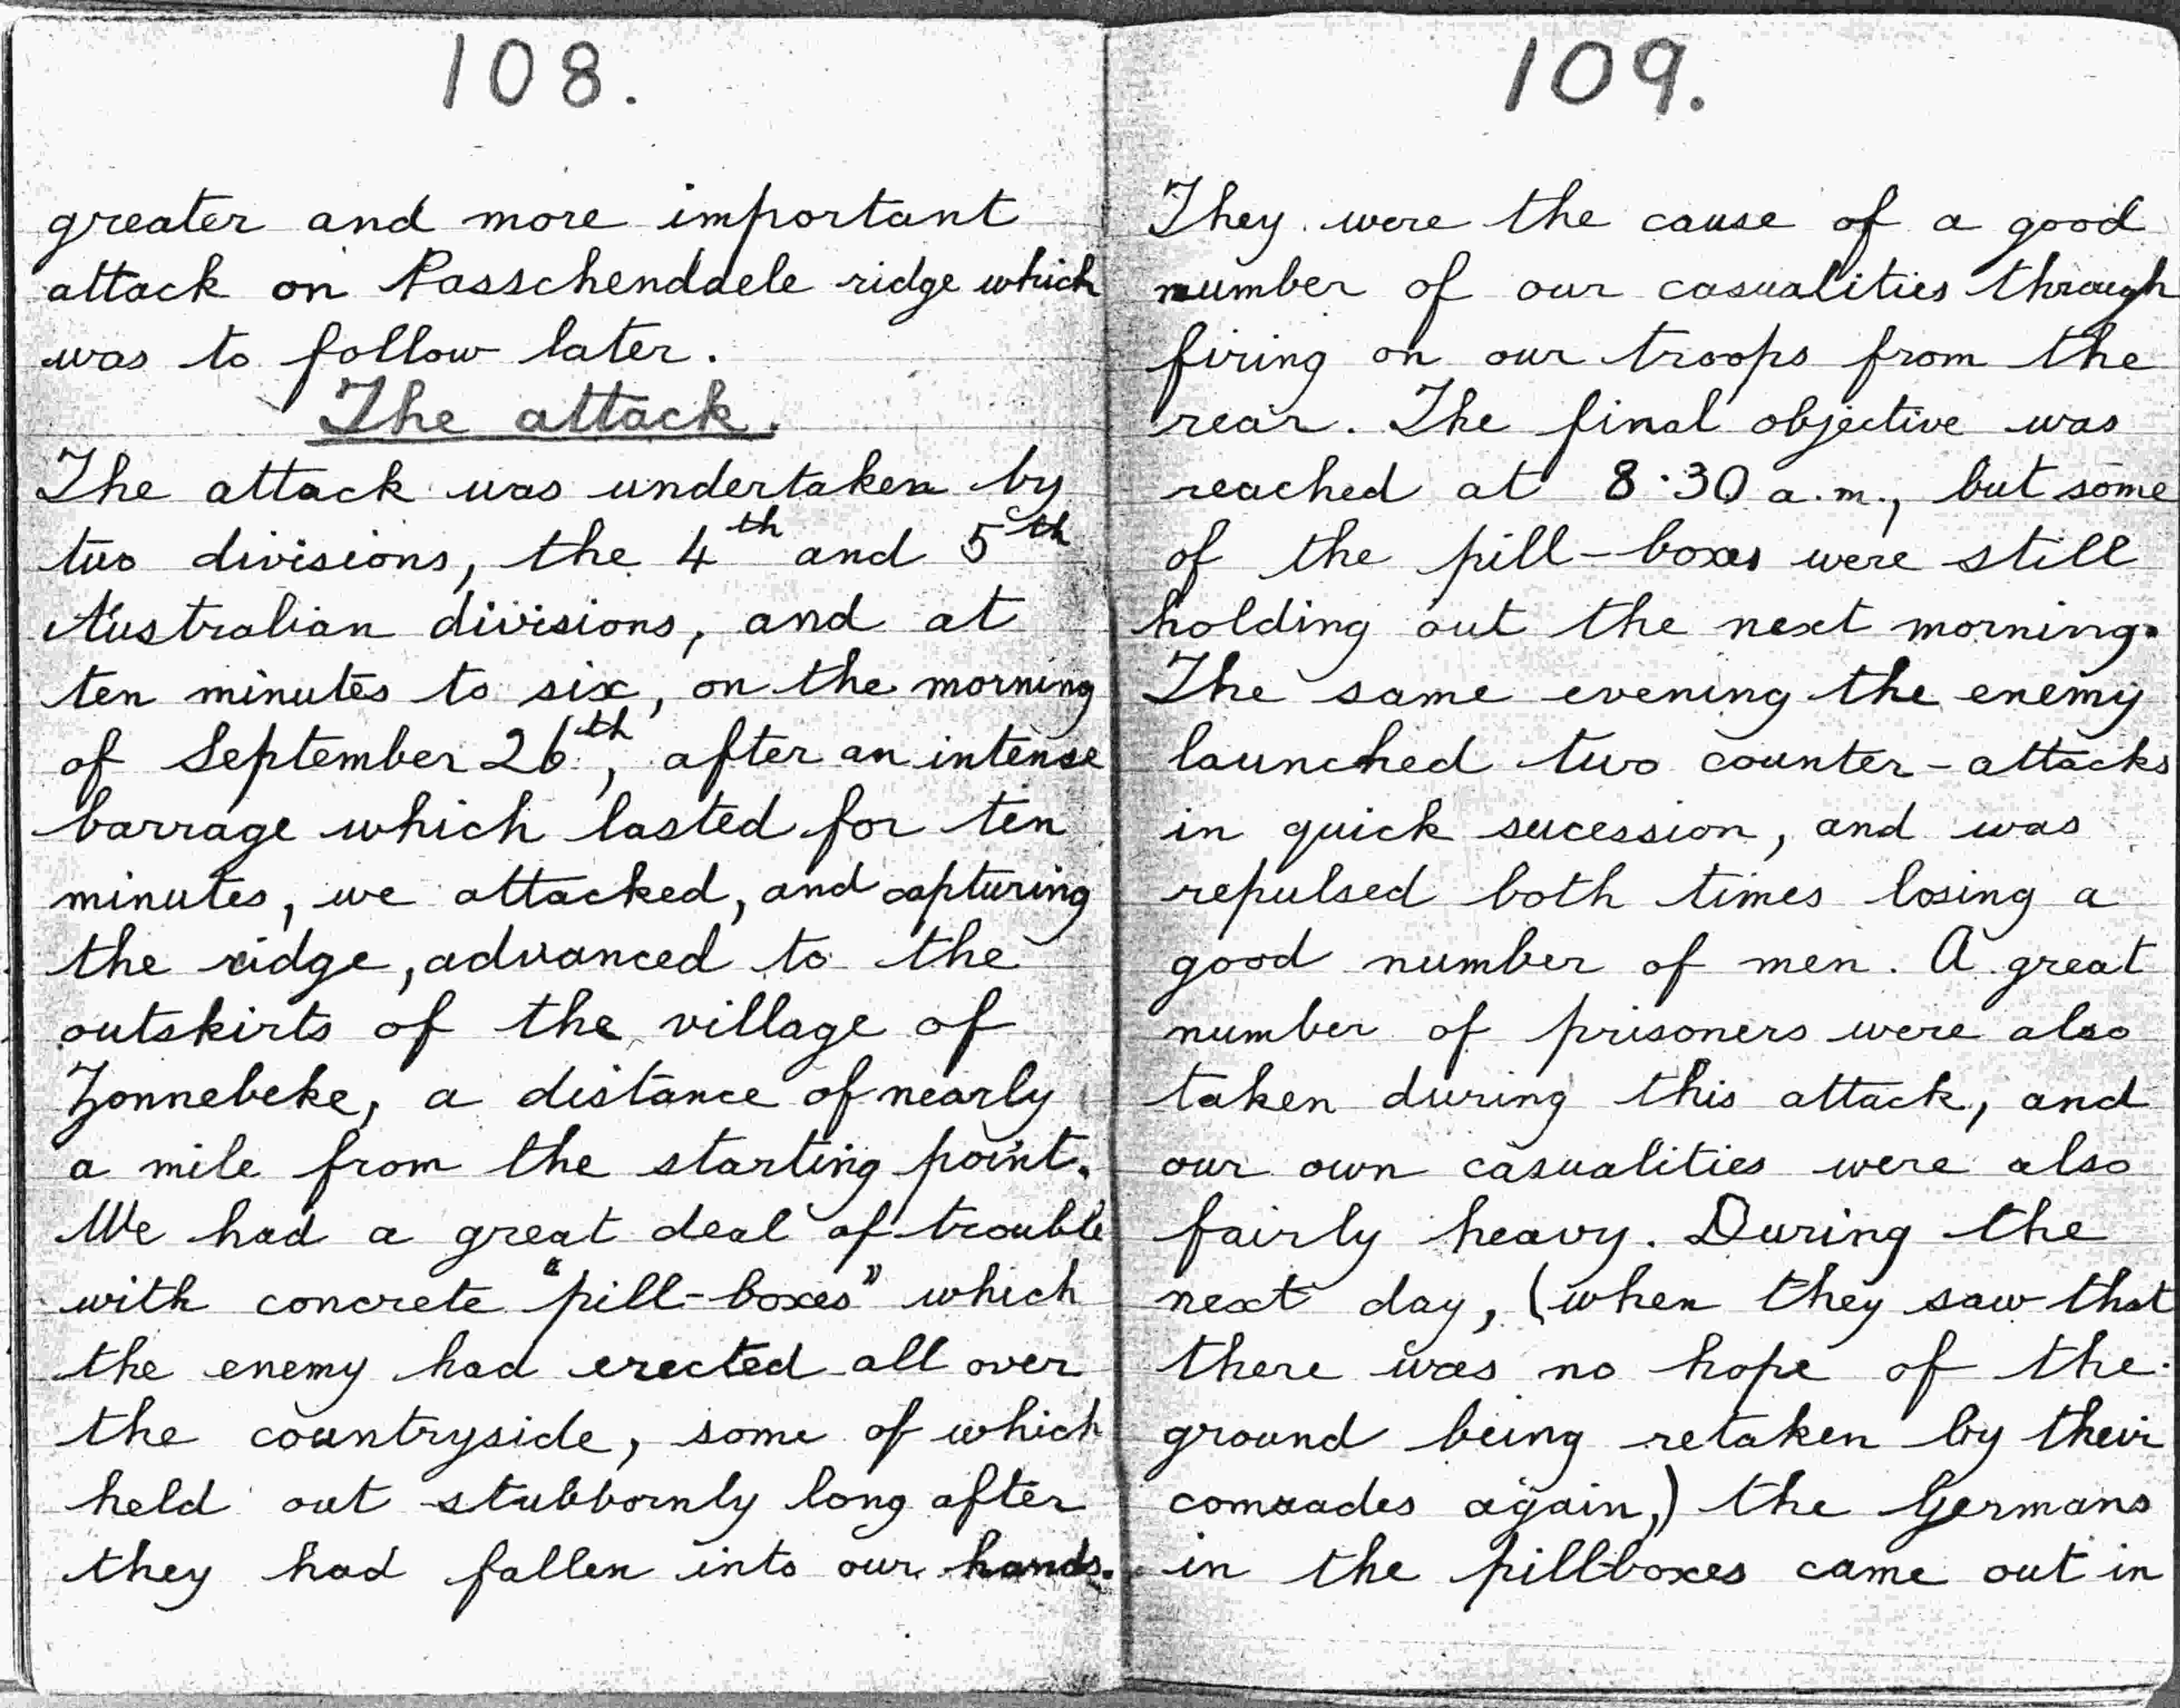 108.
greater and more important
attack on Passchendaele ridge which
was to follow later.
The attack.
The attack was undertaken by
two divisions, the 4th and 5th
Australian divisions, and at
ten minutes to six, on the morning
of September 26th, after an intense
barrage which lasted for ten
minutes, we attacked, and capturing
the ridge, advanced to the
outskirts of the village of
Zonnebeke, a distance of nearly
a mile from the starting point.
We had a great deal of trouble
with concrete "pill-boxes" which
the enemy had erected all over
the countryside, some of which
held out stubbornly long after
they had fallen into our hands.
109.
They were the cause of a good
number of our casualities through
firing on our troops from the
rear. The final objective was
reached at 8.30 a.m., but some
of the pill-boxes were still
holding out the next morning.
The same evening the enemy
launched two counter-attacks
in quick sucession, and was
repulsed both times losing a
good number of men. A great
number of prisoners were also
taken during this attack, and
our own casualities were also
fairly heavy. During the
next day, (when they saw that
there was no hope of the
ground being retaken by their
comrades again,) the Germans
in the pillboxes came out in